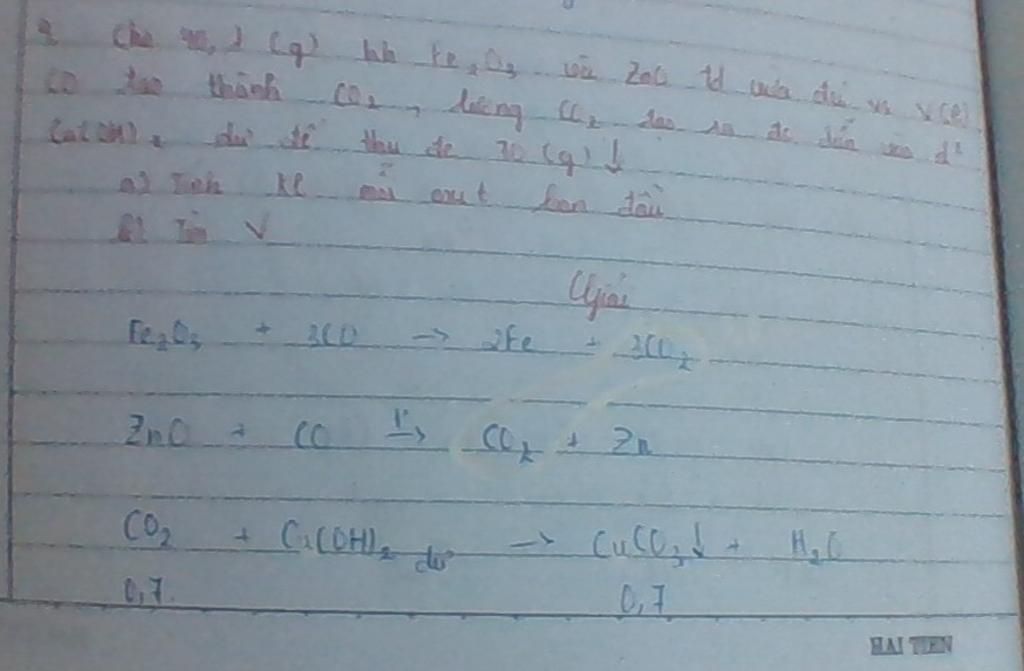 Cho (g) hh Fe₂O₃ và ZnO td vừa đủ vs V(l)
CO tạo thành CO₂, lượng CO₂ tạo ra đc dẫn vào d²
Ca(OH)₂ dư để thu đc 70 (g)↓
a) Tính KL mỗi oxit ban đầu
b) Tìm V
Giải
Fe₂O₃ + 3CO → 2Fe + 3CO₂
ZnO + CO →(t°) CO₂ + Zn
CO₂ + Ca(OH)₂ dư → CaCO₃↓ + H₂O
0,7 0,7
HAI TIEN